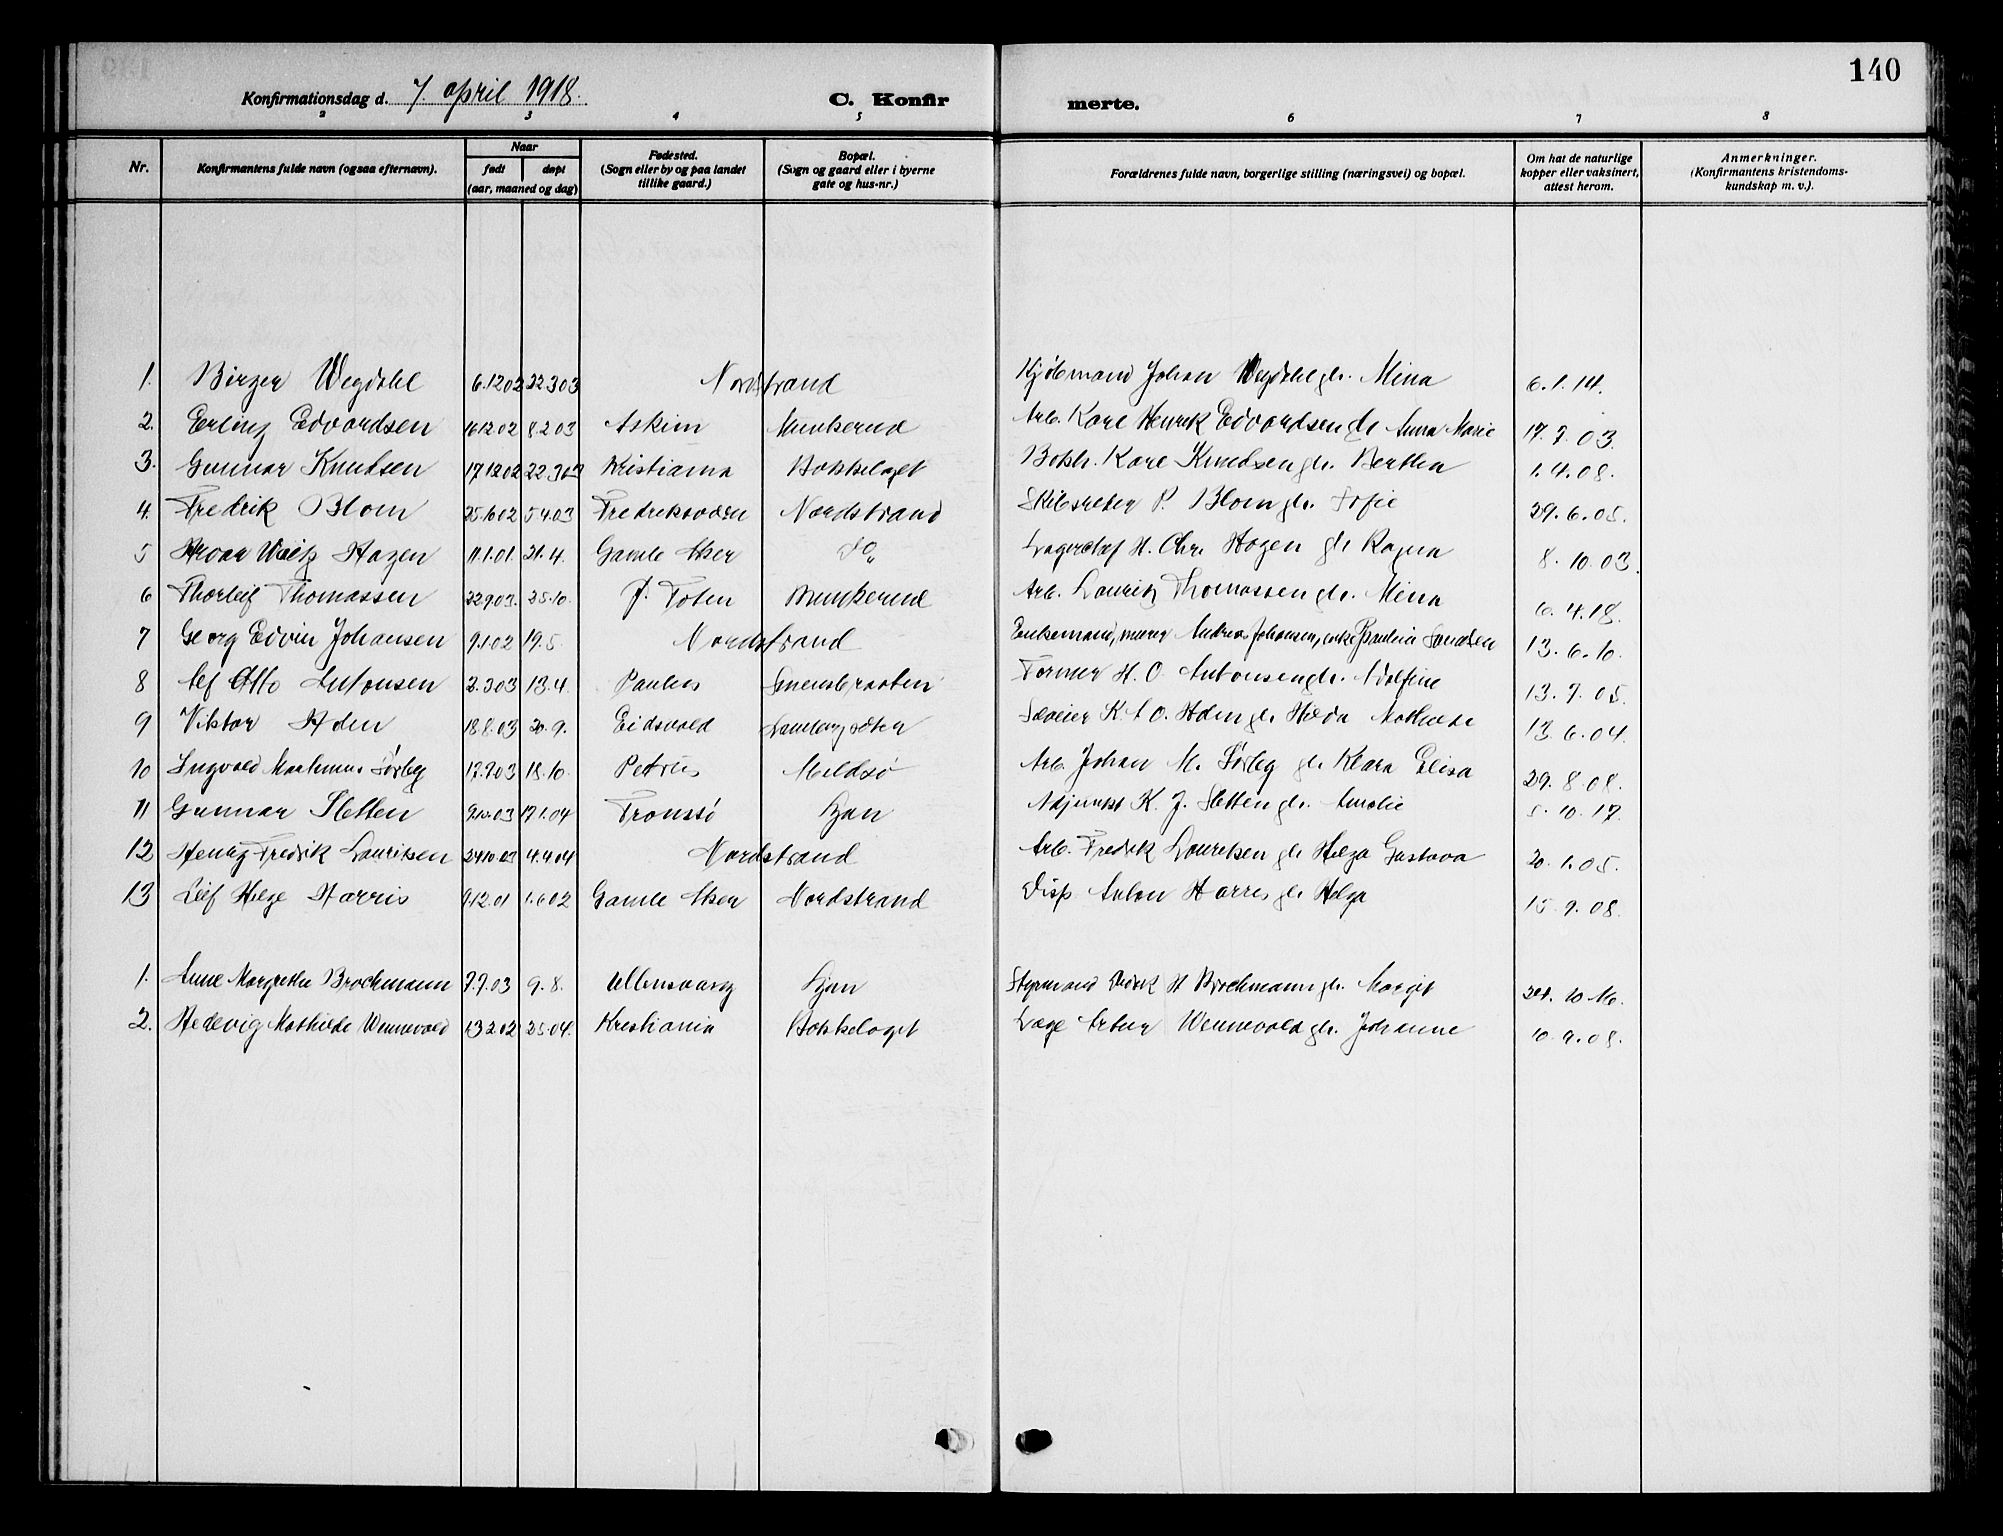 140
Konfirmationsdag d. 7. april 1918. C. Konfir merte.
2 3 4 5 6 7 8
Nr. Konfirmantens fulde navn (ogsaa efternavn). Naar født døpt (aar, maaned og dag) Fødested. (Sogn eller by og paa landet tillike gaard.) Bopæl. (Sogn og gaard eller i byerne gate og hus-nr.) Forældrenes fulde navn, borgerlige stilling (næringsvei) og bopæl. Om hat de naturlige kopper eller vaksinert, attest herom. Anmerkninger. (Konfirmantens kristendoms-kundskap m. v.).
1. Birger Wegdahl 6.12 02 22.3 03 Nordstrand Kjøbmand Johan Wegdahl gh. Mina 6.1.14.
2. Erling Edvardsen 16.12 02 8.2 03 Askim Munkerud Arb. Karl Henrik Edvardsen gh. Anna Marie 17.7.03.
3. Gunnar Knudsen 17.12 02 22.3 03 Kristiania Bækkelaget Bokh. Karl Knudsen gh. Bertha 1.4.08.
4. Fredrik Blom 25.10 02 5.4.03 Nordstrand Skibsreder P. Blom gh. Sofie 29.6.05.
5 Hagen 11.1.01. 21.4. Gamle Aker do Lagerchef H. Chr. Hagen gh. Ragna 8.10.03.
6 Thorleif Thomassen 22.9 03. 25.10. Toten Munkerud Arb. Lauritz Thomassen gh. Mina 6.4.18.
7 Georg Edvin Johansen 9.1 02 19.5. Nordstrand Enkemand, murer Andreas Johansen, 13.6.10.
8 Alf Otto Antonsen 2.3 03 13.4. Paulus Former H. O. Antonsen gh. Adolfine 13.7.05.
9 Viktor Holen 18.8.03 20.9. Eidsvold K. A. O. Holen gh. Hilda Mathilde 13.6.04.
10 Ingvald Sørby 17.7 03 18.10. Petrus Arb. Johan M. Sørby gh. Klara Elisa 29.8.08.
11 Gunnar Sletten 9.10.03 17.1.04 Tromsø Ljan Adjunkt K. J. Sletten gh. Amalie 5.10.17.
12 Henry Fredrik Lauritsen 24.10.03 4.4 04 Nordstrand Arb. Fredrik Lauritsen gh. Helga Gustava 20.1.05.
13 Leif Helge Harris 9.12.01 1.6 02 Gamle Aker Nordstrand Disp. Anton Harris gh. Helga 15.9.08.
1. Anne Margrethe Brochmann 7.7.03 9.8. Ullensvang Ljan Styrmand Brochmann gh. Margit
2. Hedevig Mathilde Wennevold 13.2.02 25.04. Kristiania Bækkelaget Wennevold gh. Johanne 10.9.08.